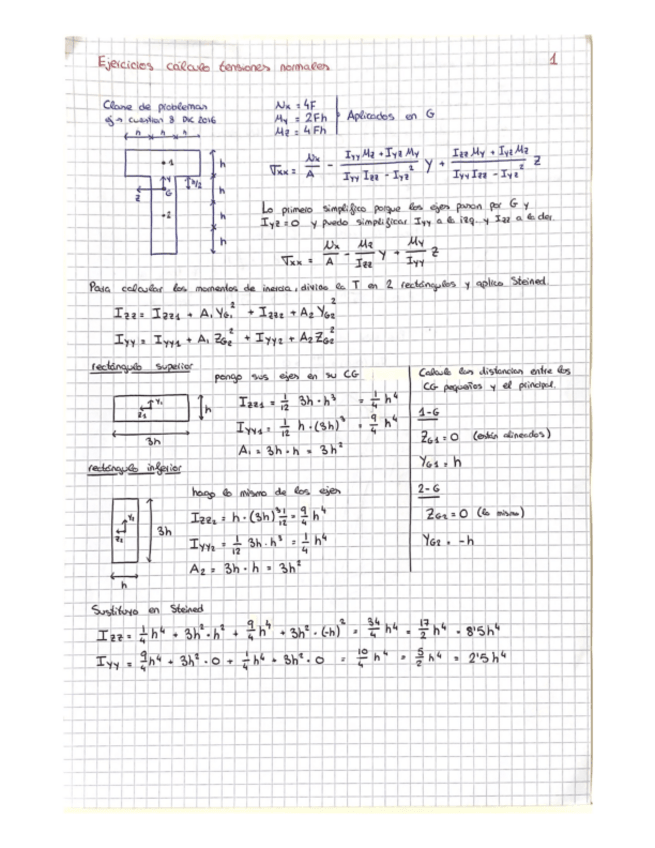 Ejercicios cálculo tensiones normales
1
Clase de problemas
ej → cuestion 3 Dic 2016
Nx = 4F
My = 2Fh
Mz = 4Fh
Aplicados en G
h h h
1
h
h/2
h
h
h
Y
Z
G
2
σxx = Nx/A - (Iyy Mz + Iyz My)/(Iyy Izz - Iyz²) y + (Izz My + Iyz Mz)/(Iyy Izz - Iyz²) z
Lo primero simplifico porque los ejes pasan por G y
Iyz = 0 y puedo simplificar Iyy a la izq. y Izz a la der
σxx = Nx/A - Mz/Izz y + My/Iyy z
Para calcular los momentos de inercia, divido la T en 2 rectángulos y aplico Steined.
Izz = Izz1 + A1 YG1² + Izz2 + A2 YG2²
Iyy = Iyy1 + A1 ZG2² + Iyy2 + A2 ZG2²
rectángulo superior
pongo sus ejes en su CG
Y1
Z1
h
3h
Izz1 = 1/12 3h · h³ = 1/4 h⁴
Iyy1 = 1/12 h · (3h)³ = 9/4 h⁴
A1 = 3h · h = 3h²
Calculo las distancias entre los
CG pequeños y el principal.
1-G
ZG1 = 0 (están alineados)
YG1 = h
2-G
ZG2 = 0 (lo mismo)
YG2 = -h
rectángulo inferior
hago lo mismo de los ejes
Y1
Z1
3h
h
Izz2 = h · (3h)³ 1/12 = 9/4 h⁴
Iyy2 = 1/12 3h · h³ = 1/4 h⁴
A2 = 3h · h = 3h²
Sustituyo en Steined
Izz = 1/4 h⁴ + 3h² · h² + 9/4 h⁴ + 3h² · (-h)² = 34/4 h⁴ = 17/2 h⁴ = 8'5h⁴
Iyy = 9/4 h⁴ + 3h² · 0 + 1/4 h⁴ + 3h² · 0 = 10/4 h⁴ = 5/2 h⁴ = 2'5h⁴